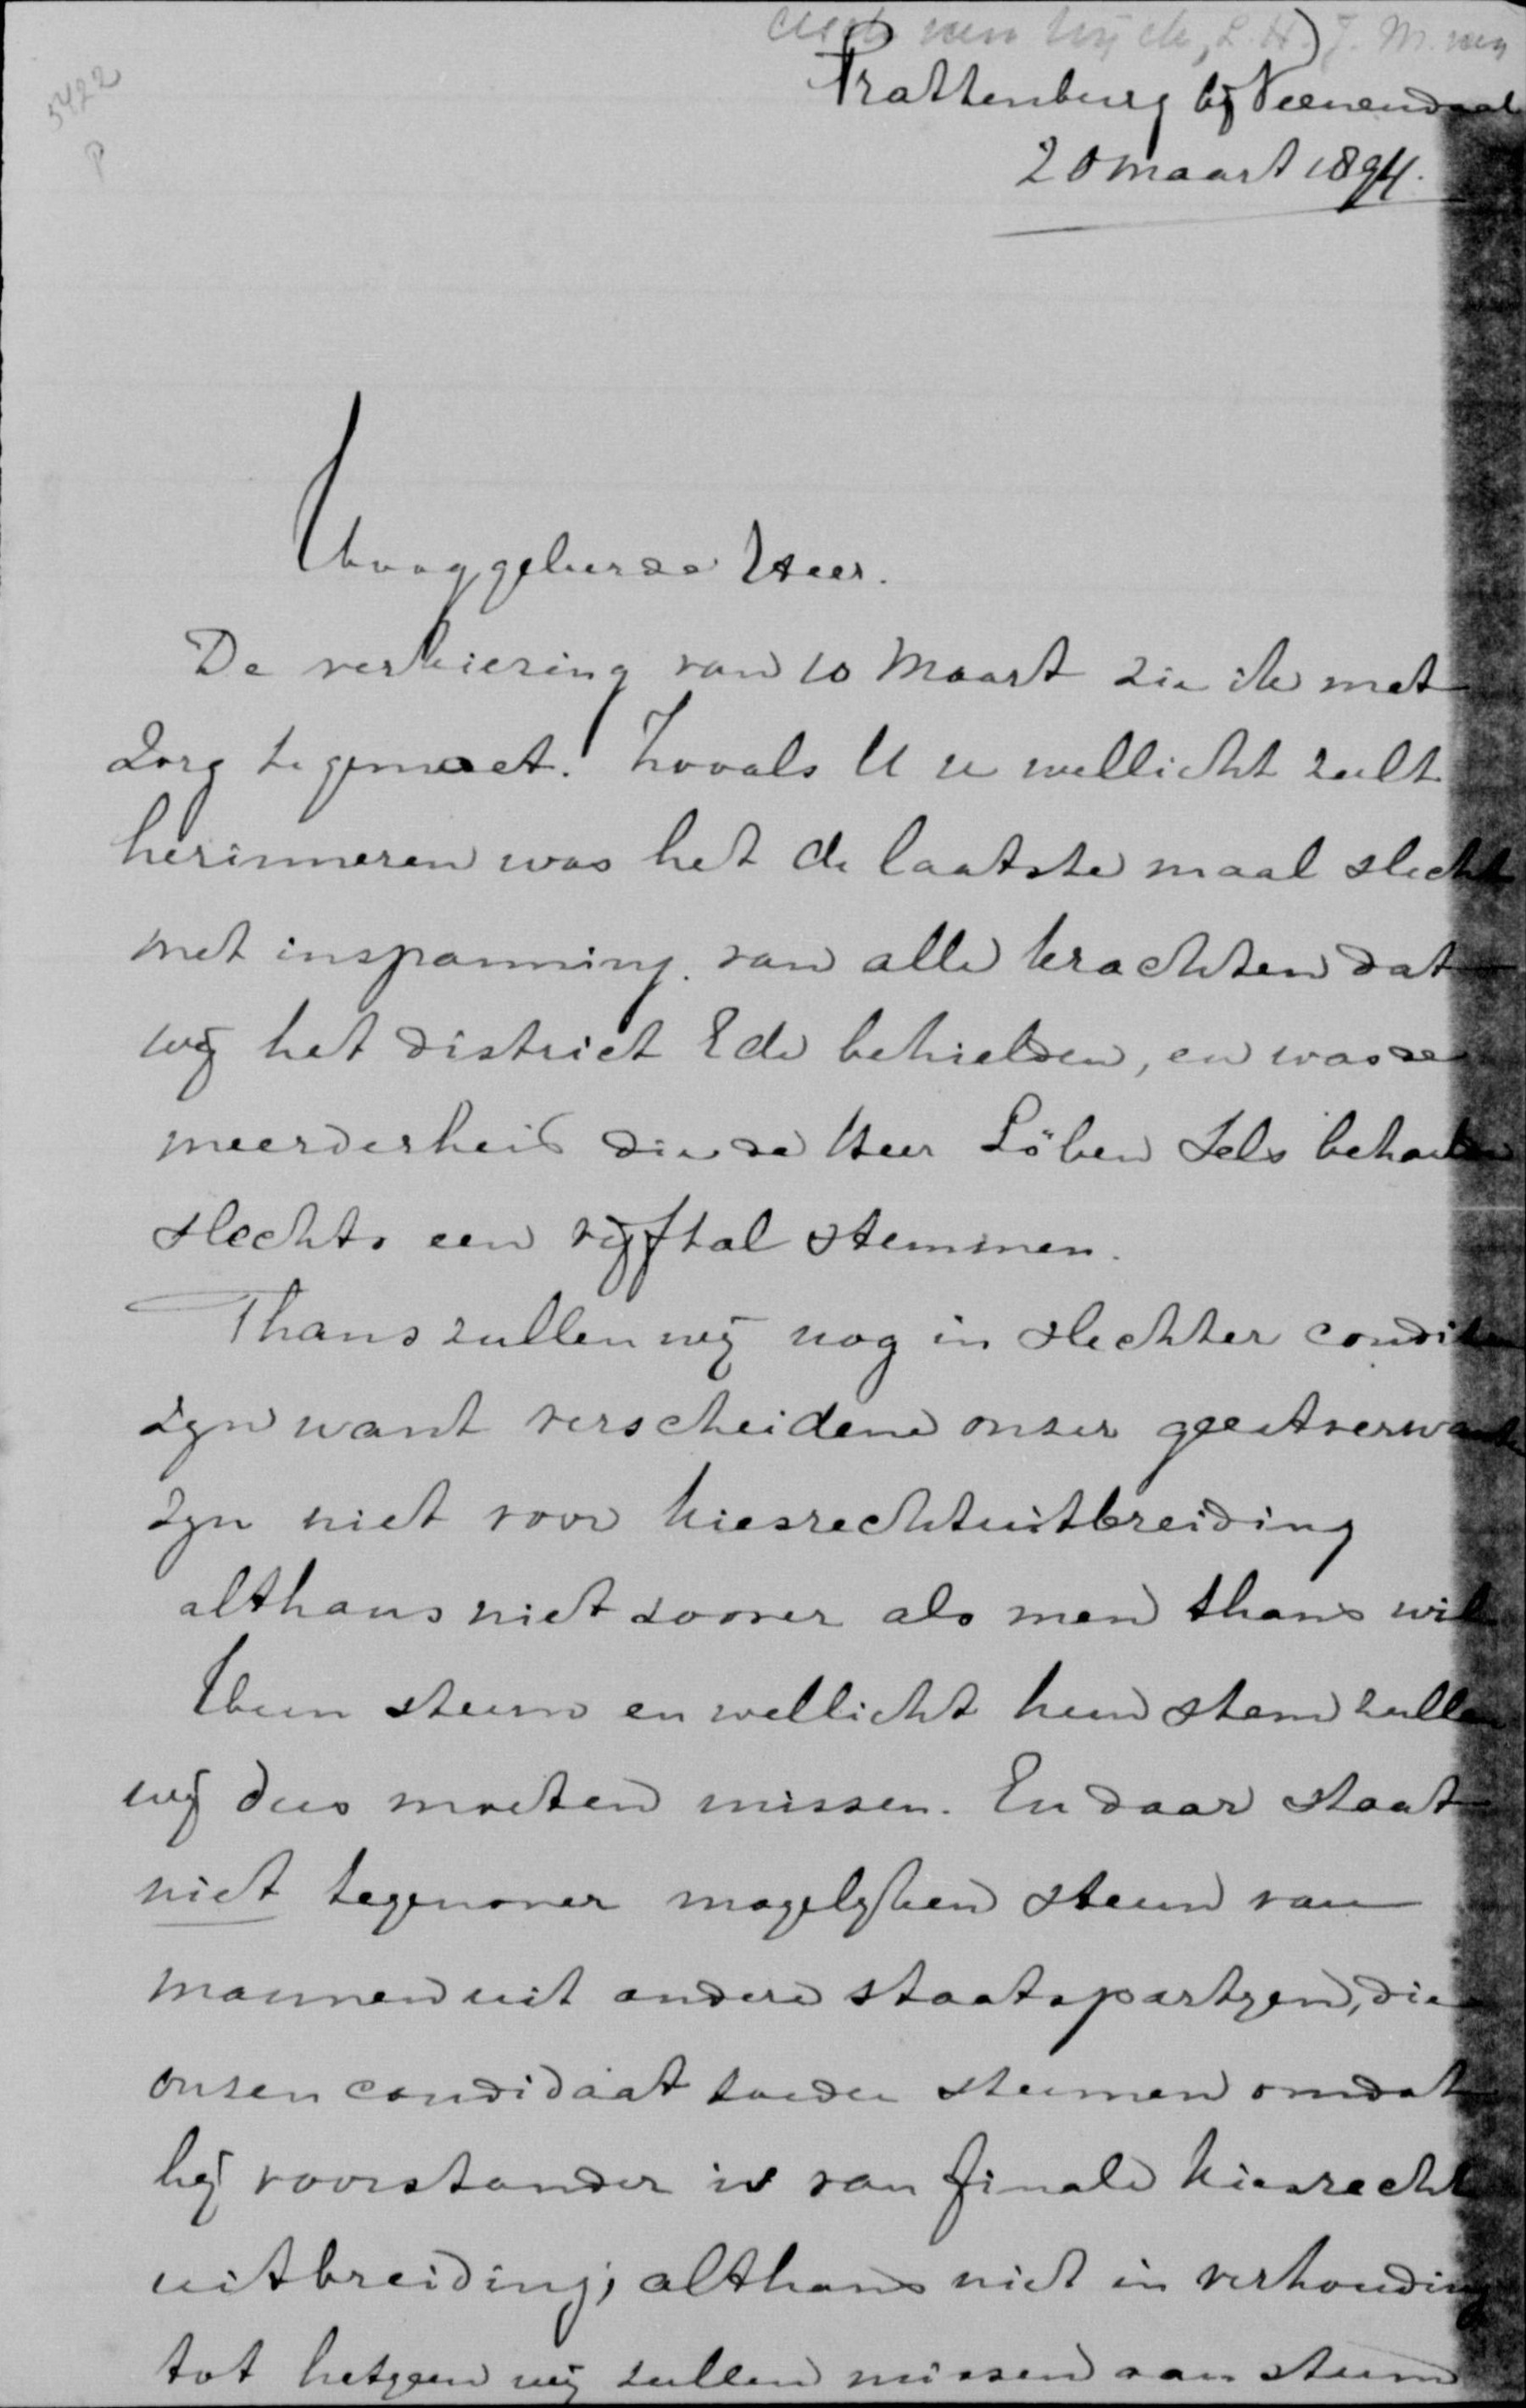 5422
P
L. H.) J. M. van
Prattenburg bij Veenendaal
20 maart 1894.
Hooggeboren Heer.
De verkiezing van 10 Maart zie ik met
zorg tegemoet. Zooals U u wellicht zult
herinneren was het de laatste maal slechts
met inspanning van alle krachten dat
wij het district Ede behielden, en was de
meerderheid die de Heer Löben Sels behaalde
slechts een vijftal stemmen.
Thans zullen wij nog in slechter conditien
zijn want verscheidene onzer geestverwanten
zijn niet voor kiesrechtuitbreiding
althans niet zoover als men thans wil
Hun steun en wellicht hun stem zullen
wij dus moeten missen. En daar staat
niet tegenover mogelijken steun van
mannen uit andere staatspartijen, die
onzen candidaat zouden steunen omdat
hij voorstander is van finale kiesrecht
uitbreiding; althans niet in verhouding
tot hetgeen wij zullen missen aan steun